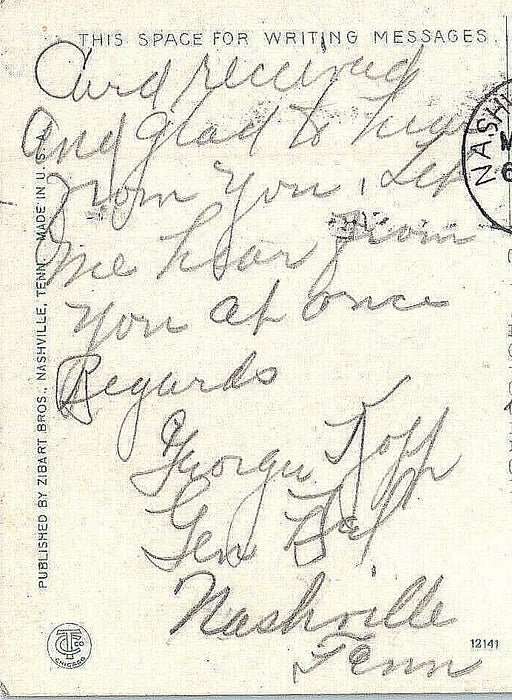 THIS SPACE FOR WRITING MESSAGES.
Card received
And glad to hear
from you, Let
me hear from
you at once
Regards
George Kopp
Gen Del
Nashville
Tenn
PUBLISHED BY ZIBART BROS., NASHVILLE, TENN. MADE IN U.S.A.
NASHV
CT CO
CHICAGO
12141